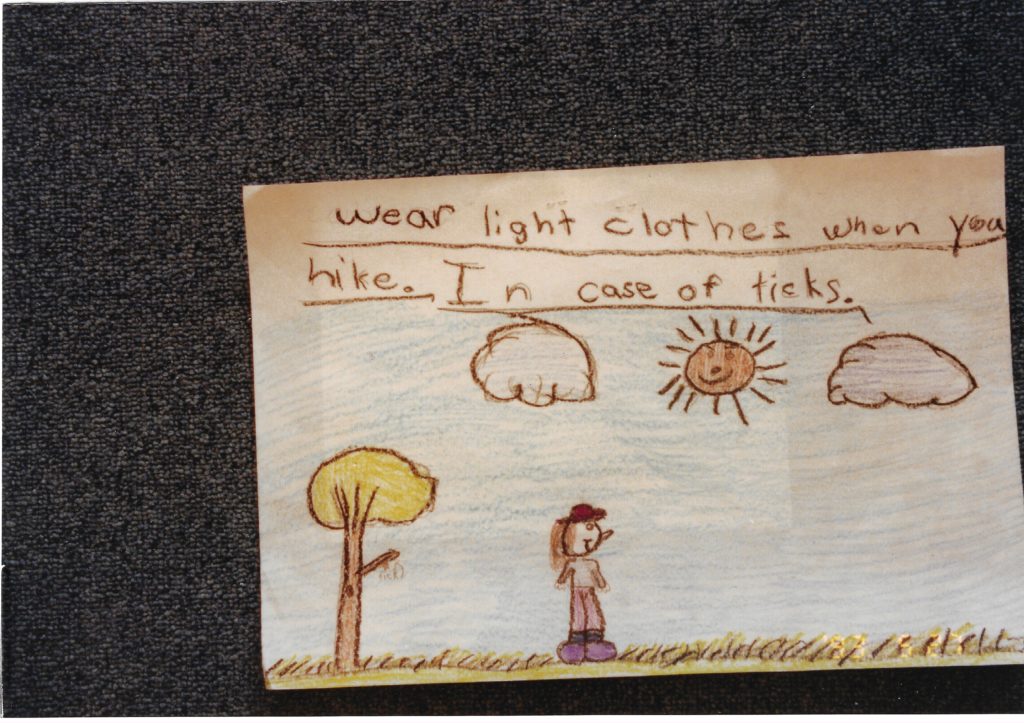 wear light clothes when you
hike. In case of ticks.